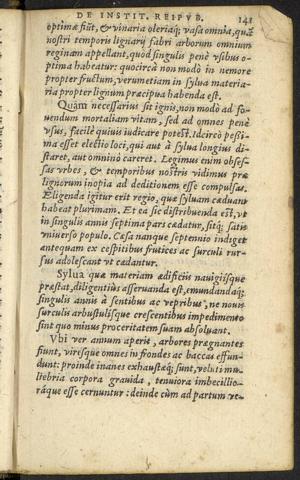 DE INSTIT. REIPVB. 141
optimæ fiũt, & vinaria oleriaq́; vasa omnia, quã
nostri temporis lignarij fabri arborum omnium
reginam appellant, quòd singulis penè vsibus o-
ptima habeatur: quocircà non modò in nemore
propter fructum, verumetiam in sylua materia-
ria propter lignum præcipua habenda est.
Quàm necessarius sit ignis, non modò ad fo-
uendum mortaliam vitam, sed ad omnes penè
vsus, facilè quiuis iudicare potest. Idcircò pessi-
ma esset electio loci, qui aut à sylua longius di-
staret, aut omnino careret. Legimus enim obses-
sas vrbes, & temporibus nostris vidimus præ
lignorum inopia ad deditionem esse compulsas.
Eligenda igitur erit regio, quæ syluam cæduam
habeat plurimam. Et ea sic distribuenda est, vt
in singulis annis septima pars cædatur, sitq́; satis
vniuerso populo. Cæsa nanque septennio indiget
antequam ex cespitibus frutices ac surculi rur-
sus adolescant vt cædantur.
Sylua quæ materiam ædificiis nauigiisque
præstat, diligentiùs asseruanda est, emundandaq́;
singulis annis à sentibus ac vepribus, ne noui
surculi arbustulisque crescentibus impedimento
sint quo minus proceritatem suam absoluant.
Vbi ver annum aperit, arbores prægnantes
fiunt, viresque omnes in frondes ac baccas effun-
dunt: proinde inanes exhaustæq́; sunt, veluti mu-
liebria corpora grauida, tenuiora imbecillio-
ráque esse cernuntur: deinde cùm ad partum ve-